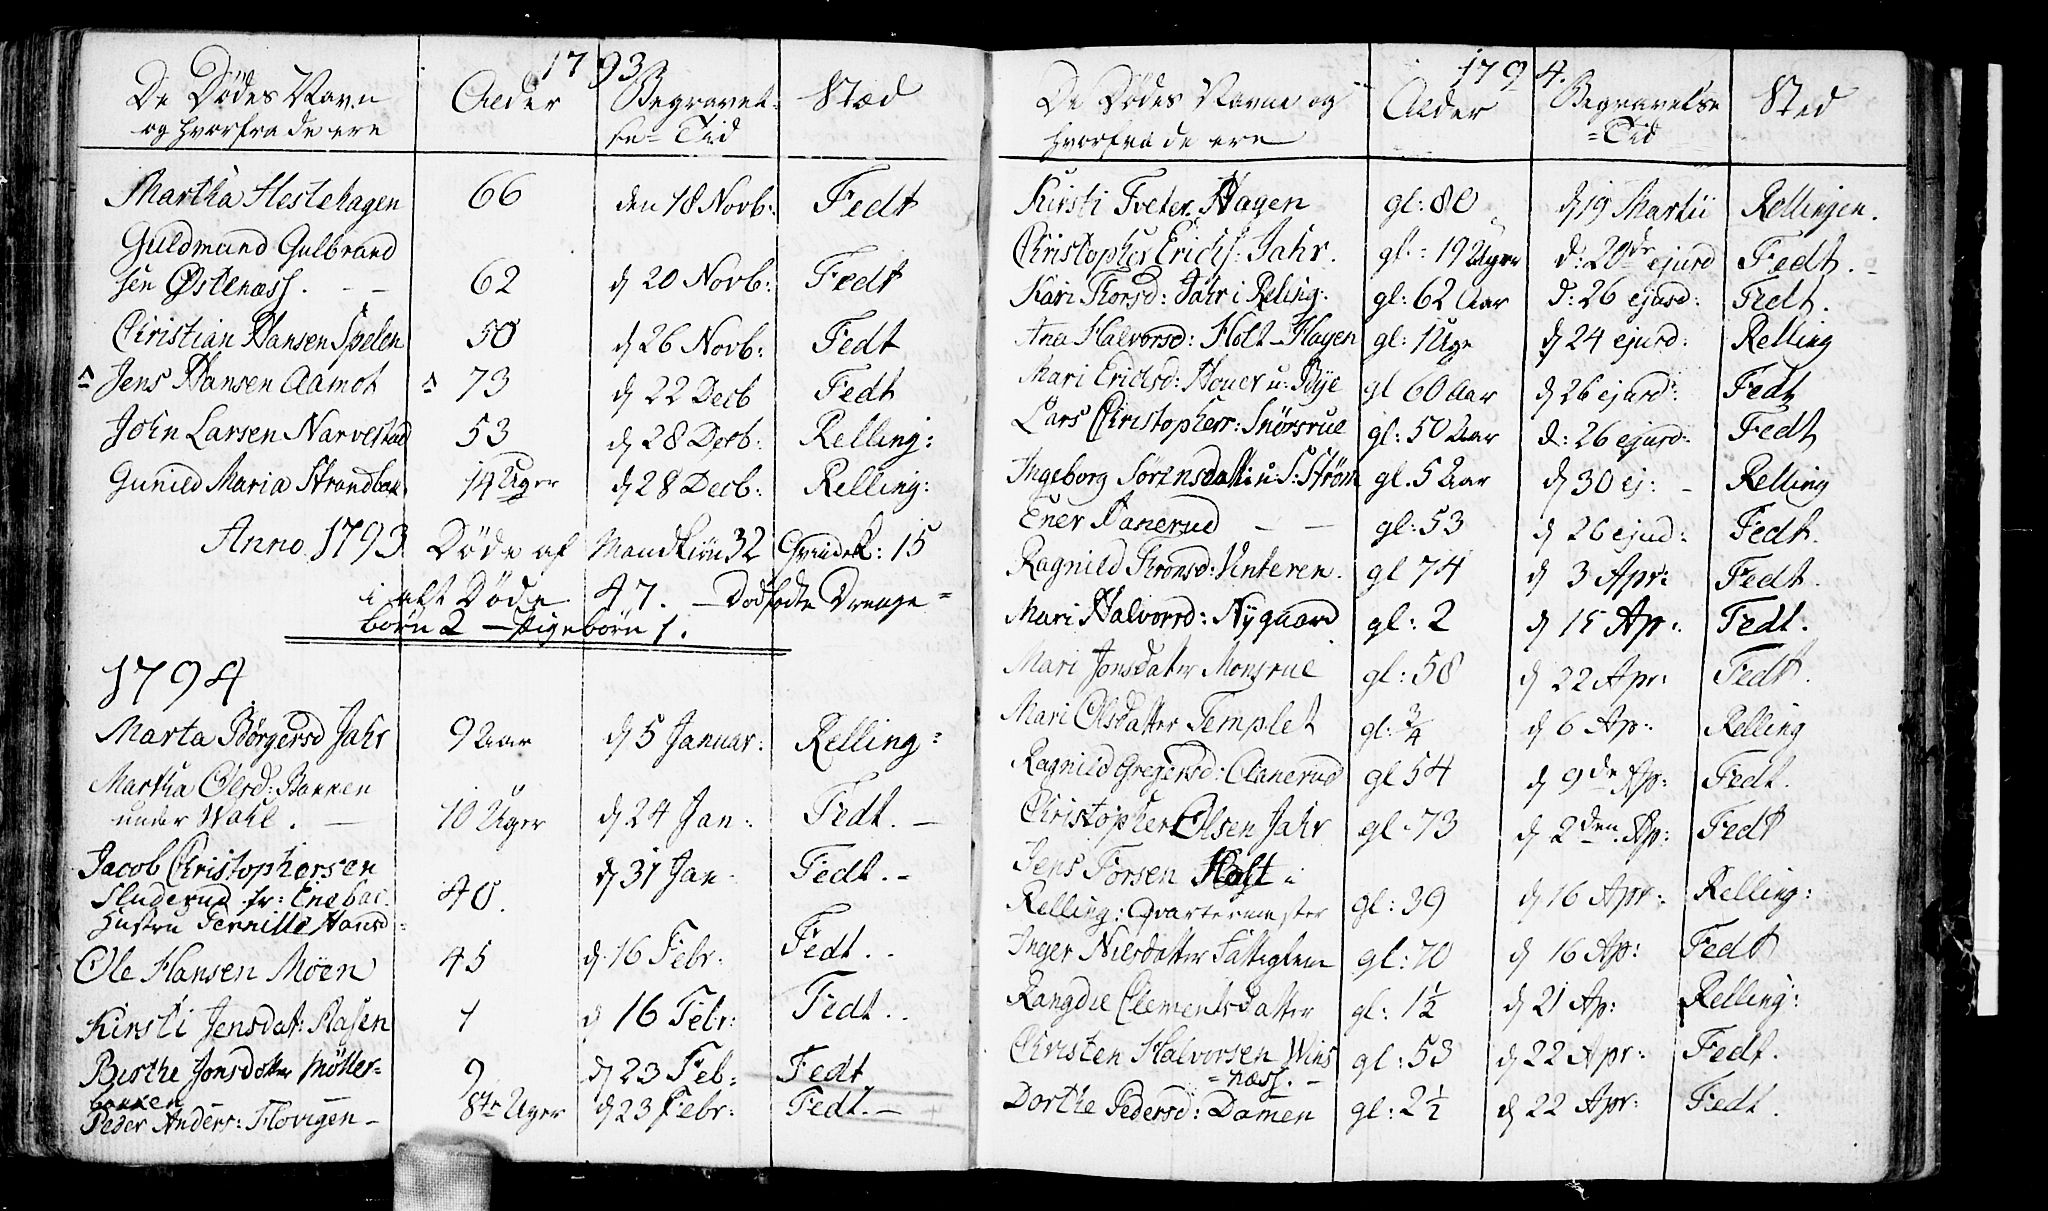 1793
De Dødes Navn Alder Begravel- Stæd
og hvorfra de ere se- Tid
Martha Hestehagen 66 den 18 Novb: Fedt
Guldmund Gulbrand
sen Østenæss. - - 62 d 20 Novb: Fedt
Christian Hansen Spelen 50 d 26 Novb: Fedt
Jens Hansen Aamot 73 d 22 Decb Fedt
John Larsen Narvestad 53 d 28 Decb: Relling:
Gunild Maria Strandbak 14 Uger d 28 Decb: Relling:
Anno 1793 Døde af Mandkiøn 32 Qvindek: 15
i alt Døde 47. - Dodfødte Drenge-
børn 2 - Pigebørn 1.
1794
Marta Børgersd Jahr 9 Aar d 5 Januar: Relling:
Martha Olsd: Bakken
under Wahl. - 10 Uger d 24 Jan: Fedt. -
Jacob Christophersen d 31 Jan: Fedt. -
Sluderud fr: Enebac. 40.
Hustru Pernille Hansd:
Ole Hansen Moen 45 d. 16 Febr: Fedt..
Kirsti Jensdat: Aasen 1 d 16 Febr: Fedt..
Berthe Jonsdatter Møller- 9 d 23 Feb: Fedt
bakken
Peder Anders: Flovigen - 8te Uger d 23 Febr: Fedt. -
1794.
De Dødes Navne og Alder Begravelse Sted
hvorfra de ere =Tid
Kirsti Tveter Hagen gl: 80 d 19 Martii Rellingen.
Christopher Erichs: Jahr. gl: 19 Uger d: 20de ejusd Fedt. -
Kari Thorsd: Jahr i Reling: gl: 62 Aar d: 26 ejusd: Fedt.
Ana Halvorsd: Holt-Hagen gl: 1 Uge d 24 ejusd: Relling
Mari Erichsd: Houer u: Bye gl 60 Aar d 26 ejusd: Fedt
Lars Christophers: Snørsrue gl: 50 Aar d: 26 ejusd: Fedt
Ingeborg Sørensdatt: u: S: Strøm gl. 5 Aar d 30 ej: - Relling
Ener Hanerud - - gl: 53 d 26 ejud: Fedt.
Ragnild Thronsd: Vinteren. gl 74 d 3 Apr: Fedt.
Mari Halvorsd: Nygaard gl: 2 d 15 Ap: Fedt.
Mari Jonsdatter Monsrue gl: 58 d 22 Apr: Fedt.
Mari Olsdatter Templet gl: 3/4 d 6 Ap: Relling
Ragnild Gregersd: Clanerud gl 54 d 9de Ap: Fedt.
Christopher Olsen Jahr gl. 73 d 2den Ap: Fedt
Jens Forsen Holt i
Relling: Qvartermester gl: 39 d 16 Apr: Relling:
Inger Nilsdatter Fattiglem gl: 70 d 16 Ap: Fedt
Rangdie Clementsdatter gl: 1½ d 21 Ap: Relling:
Christen Halvorsen Wins gl: 53 d 22 Apr: Fedt.
=næss. -
Dorthe Pedersd: Damen gl: 2½ d 22 Apr: Fedt.